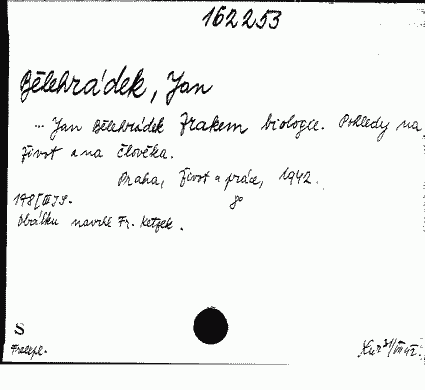 162253
Bělehrádek, Jan
... Jan Bělehrádek Zrakem biologie. Pohledy na
život a na člověka.
Praha, Život a práce, 1942.
178 [III] S. 8°
Obálku navrhl Fr.
S